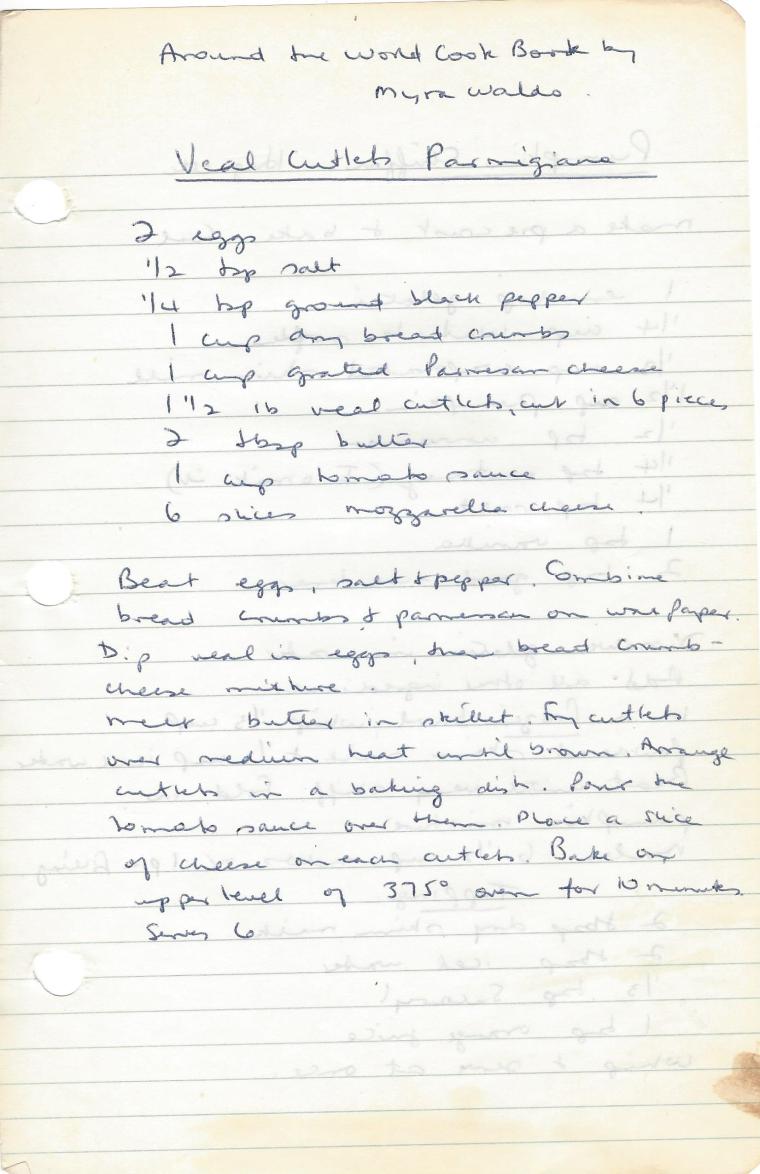 Around the World Cook Book by
Myra Waldo.
Veal Cutlets Parmigiana
2 eggs
1/2 tsp salt
1/4 tsp ground black pepper
1 cup dry bread crumbs
1 cup grated Parmesan cheese
1 1/2 lb veal cutlets, cut in 6 pieces
2 tbsp butter
1 cup tomato sauce
6 slices mozzarella cheese.
Beat eggs, salt & pepper. Combine
bread crumbs & parmesan on wax paper.
Dip veal in eggs, then bread crumb-
cheese mixture.
melt butter in skillet. Fry cutlets
over medium heat until brown. Arrange
cutlets in a baking dish. Pour the
tomato sauce over them. Place a slice
of cheese on each cutlets. Bake on
upper level of 375° oven for 10 minutes.
Serves 6